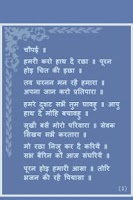 चौपई ॥
हमरी करो हाथ दै रछा ॥ पूरन
होइ चित की इछा ॥
तव चरनन मन रहै हमारा ॥
अपना जान करो प्रतिपारा ॥
हमरे दुशट सभै तुम घावहु ॥ आपु
हाथ दै मोहि बचावहु ॥
सुखी बसै मोरो परिवारा ॥ सेवक
सिखय सभै करतारा ॥
मो रछा निजु कर दै करियै ॥
सभ बैरिन कौ आज संघरियै ॥
पूरन होइ हमारी आसा ॥ तोरि
भजन की रहै पियासा ॥
(1)